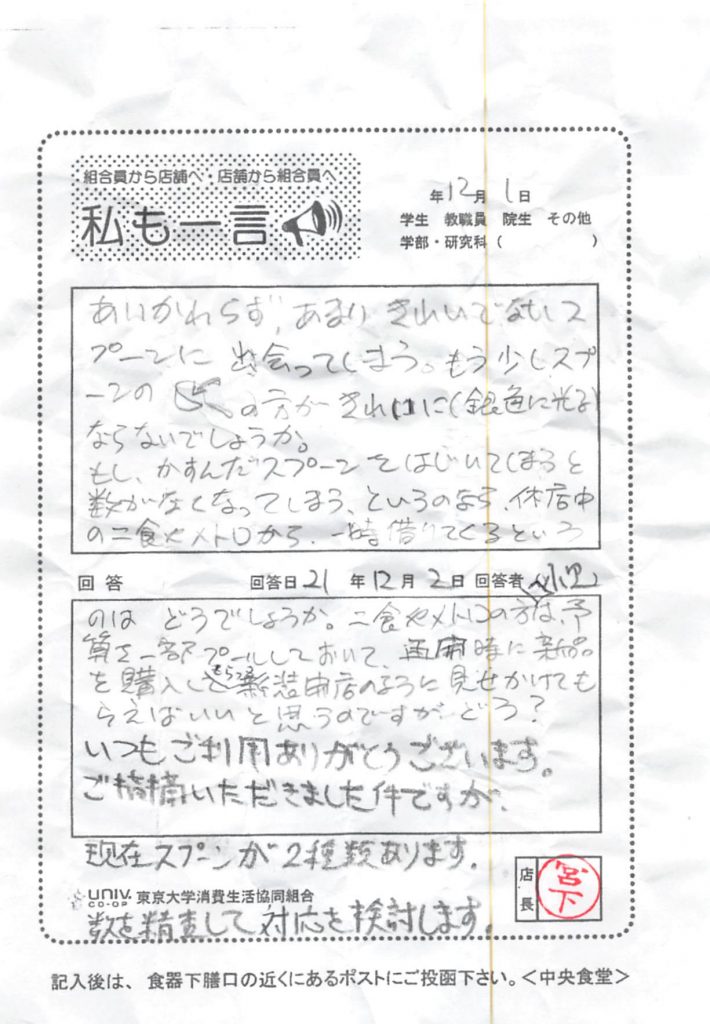 組合員から店舗へ・店舗から組合員へ
私も一言
年12月1日
学生 教職員 院生 その他
学部・研究科( )
あいかわらず、あまりきれいでないス
プーンに出会ってしまう。もう少しスプ
ーンの の方がきれいに(銀色に光る)
ならないでしょうか。
もし、かすんだスプーンをはじいてしまうと
数がなくなってしまう、というのなら、休店中
の二食やメトロから、一時借りてくるという
回答 回答日21年12月2日回答者
のは どうでしょうか。二食やメトロの方は、予
算を一部プールしておいて、再開時に新品
を購入してもらって新装開店のように見せかけても
らえばいいと思うのですがどう?
いつもご利用ありがとうございます。
ご指摘いただきました件ですが、
現在スプーンが2種類あります。
店長
宮下
UNIV. CO-OP 東京大学消費生活協同組合
数を精査して対応を検討します。
記入後は、食器下膳口の近くにあるポストにご投函下さい。<中央食堂>